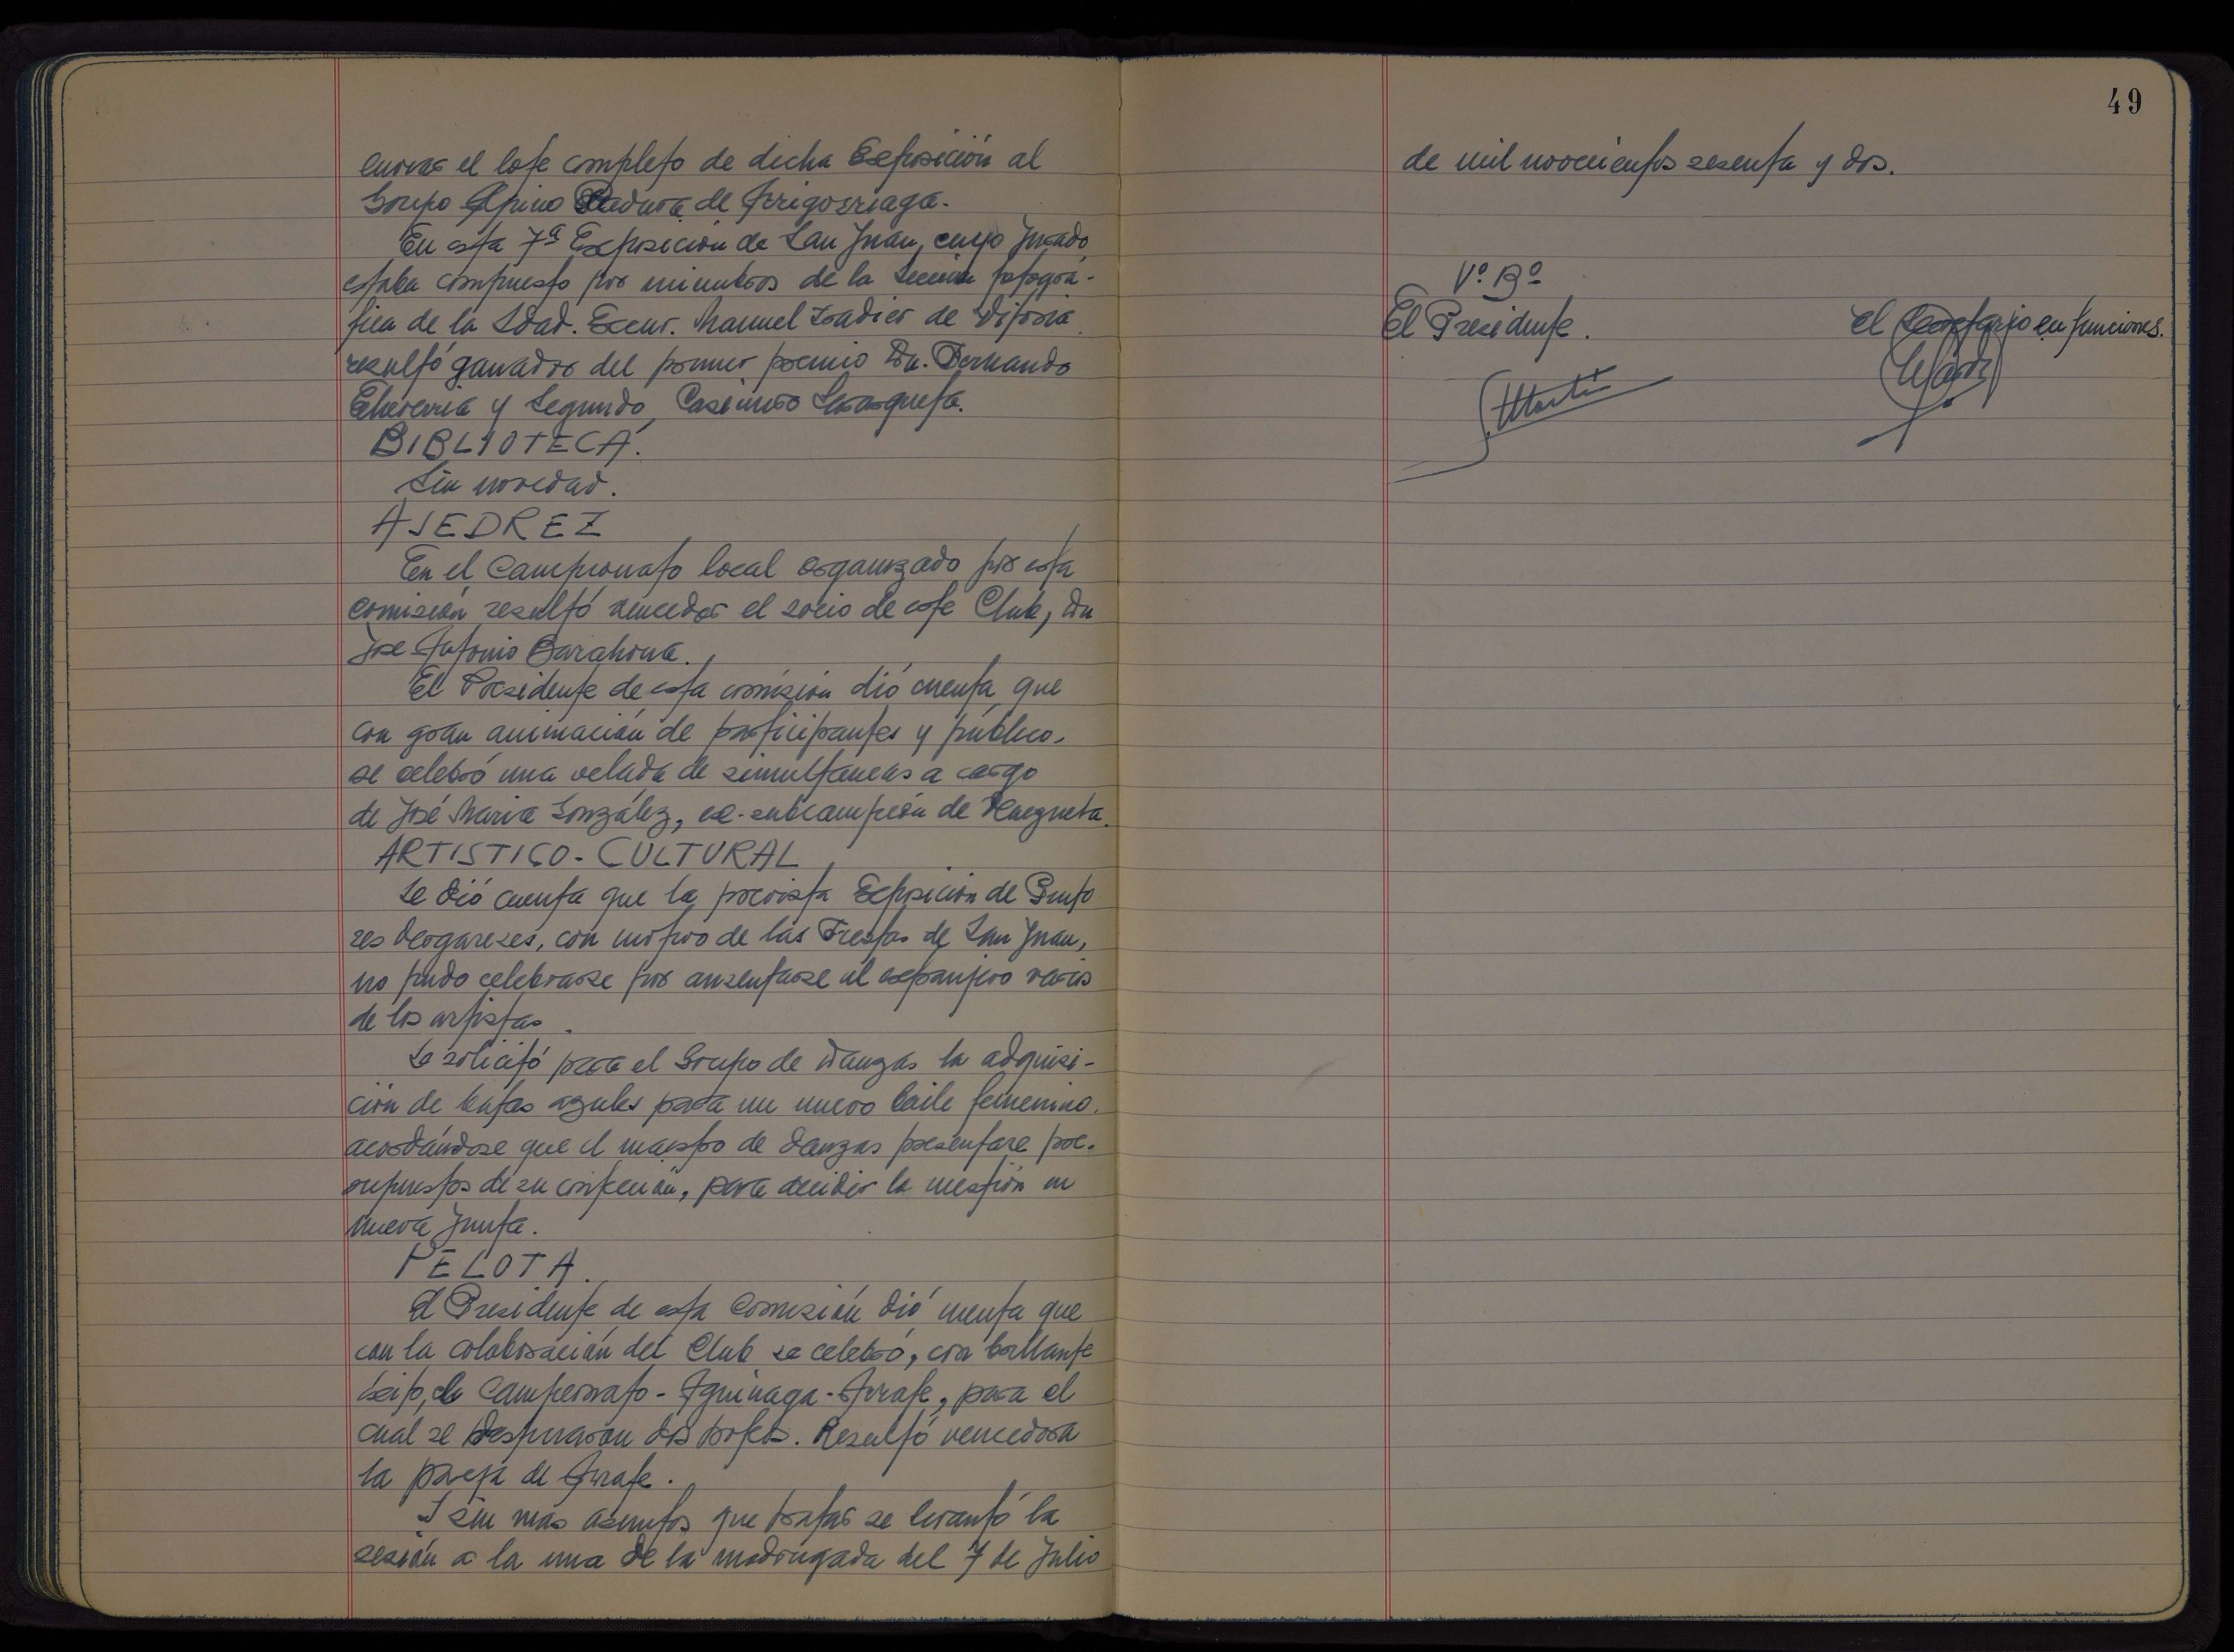 enviar el lote completo de dicha Exposición al
Grupo Alpino Padura de Arrigorriaga.
En esta 7ª Exposición de San Juan, cuyo Jurado
estaba compuesto por miembros de la Sección fotográ-
fica de la Sdad. Excur. Manuel Iradier de Vitoria
resultó ganador del primer premio Dn. Fernando
Echeverria y Segundo, Casimiro Sarasqueta.
BIBLIOTECA.
Sin novedad.
AJEDREZ
En el Campeonato local organizado por esta
comisión resultó vencedor el socio de este Club, Dn
Jose Antonio Barahona.
El Presidente de esta comisión dió cuenta, que
con gran animación de participantes y público,
se celebró una velada de simultaneas a cargo
de José Maria González, ex-subcampeón de
ARTISTICO-CULTURAL
Se dió cuenta que la prevista Exposición de Pinto
res deogareses, con motivo de las Fiestas de San Juan,
no pudo celebrarse por ausentarse al extranjero varios
de los artistas.
Se solicitó para el Grupo de Danzas la adquisi-
ción de batas azules para un nuevo baile femenino,
acordándose que el maestro de danzas presentare pre-
supuestos de su confección, para decidir la cuestión en
nueva Junta.
PELOTA.
El Presidente de esta Comisión dió cuenta que
con la colaboración del Club se celebró, con brillante
éxito, el Campeonato-Aguinaga-Arrate, para el
cual se dos trofeos. Resultó vencedora
la pareja de Arrate.
Y sin más asuntos que tratar se levantó la
sesión a la una de la madrugada del 7 de Julio
49
de mil novecientos sesenta y dos.
Vº Bº
El Presidente.
El Secretario en funciones.